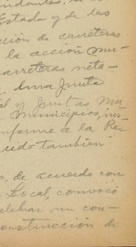 Estado y de los
ción de carreteras
la acción mu-
carreteras
una Junta
y Juntas Mu
Municipios,
informe de la Re
sido también
de acuerdo con
Local, convocó
celebrar un con-
construcción de